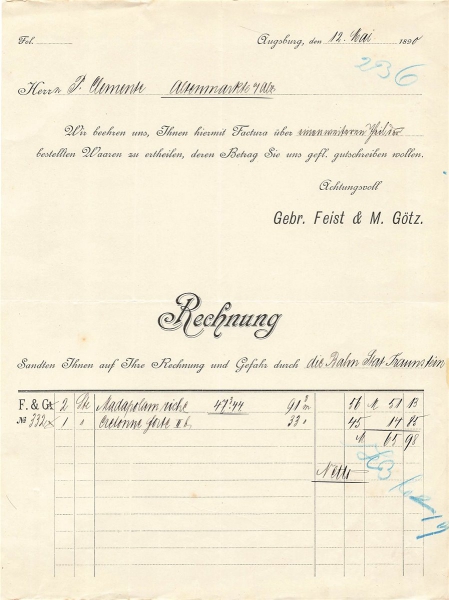 Fol.
Augsburg, den 12. Mai 1890
236
Herrn P. Clemente Altenmarkt a/Alz
Wir beehren uns, Ihnen hiermit Factura über einen weiteren Theil der
bestellten Waaren zu ertheilen, deren Betrag Sie uns gefl. gutschreiben wollen.
Achtungsvoll
Gebr. Feist & M. Götz.
Rechnung
Sandten Ihnen auf Ihre Rechnung und Gefahr durch die Bahn Stat. Traunstein
F. & G. 2 Stk Madapolam riche 47² 44 91² m 56 M 51 13
№ 332 1 " Cretonne forte 33 " 45 14 85
M 65 98
Netto